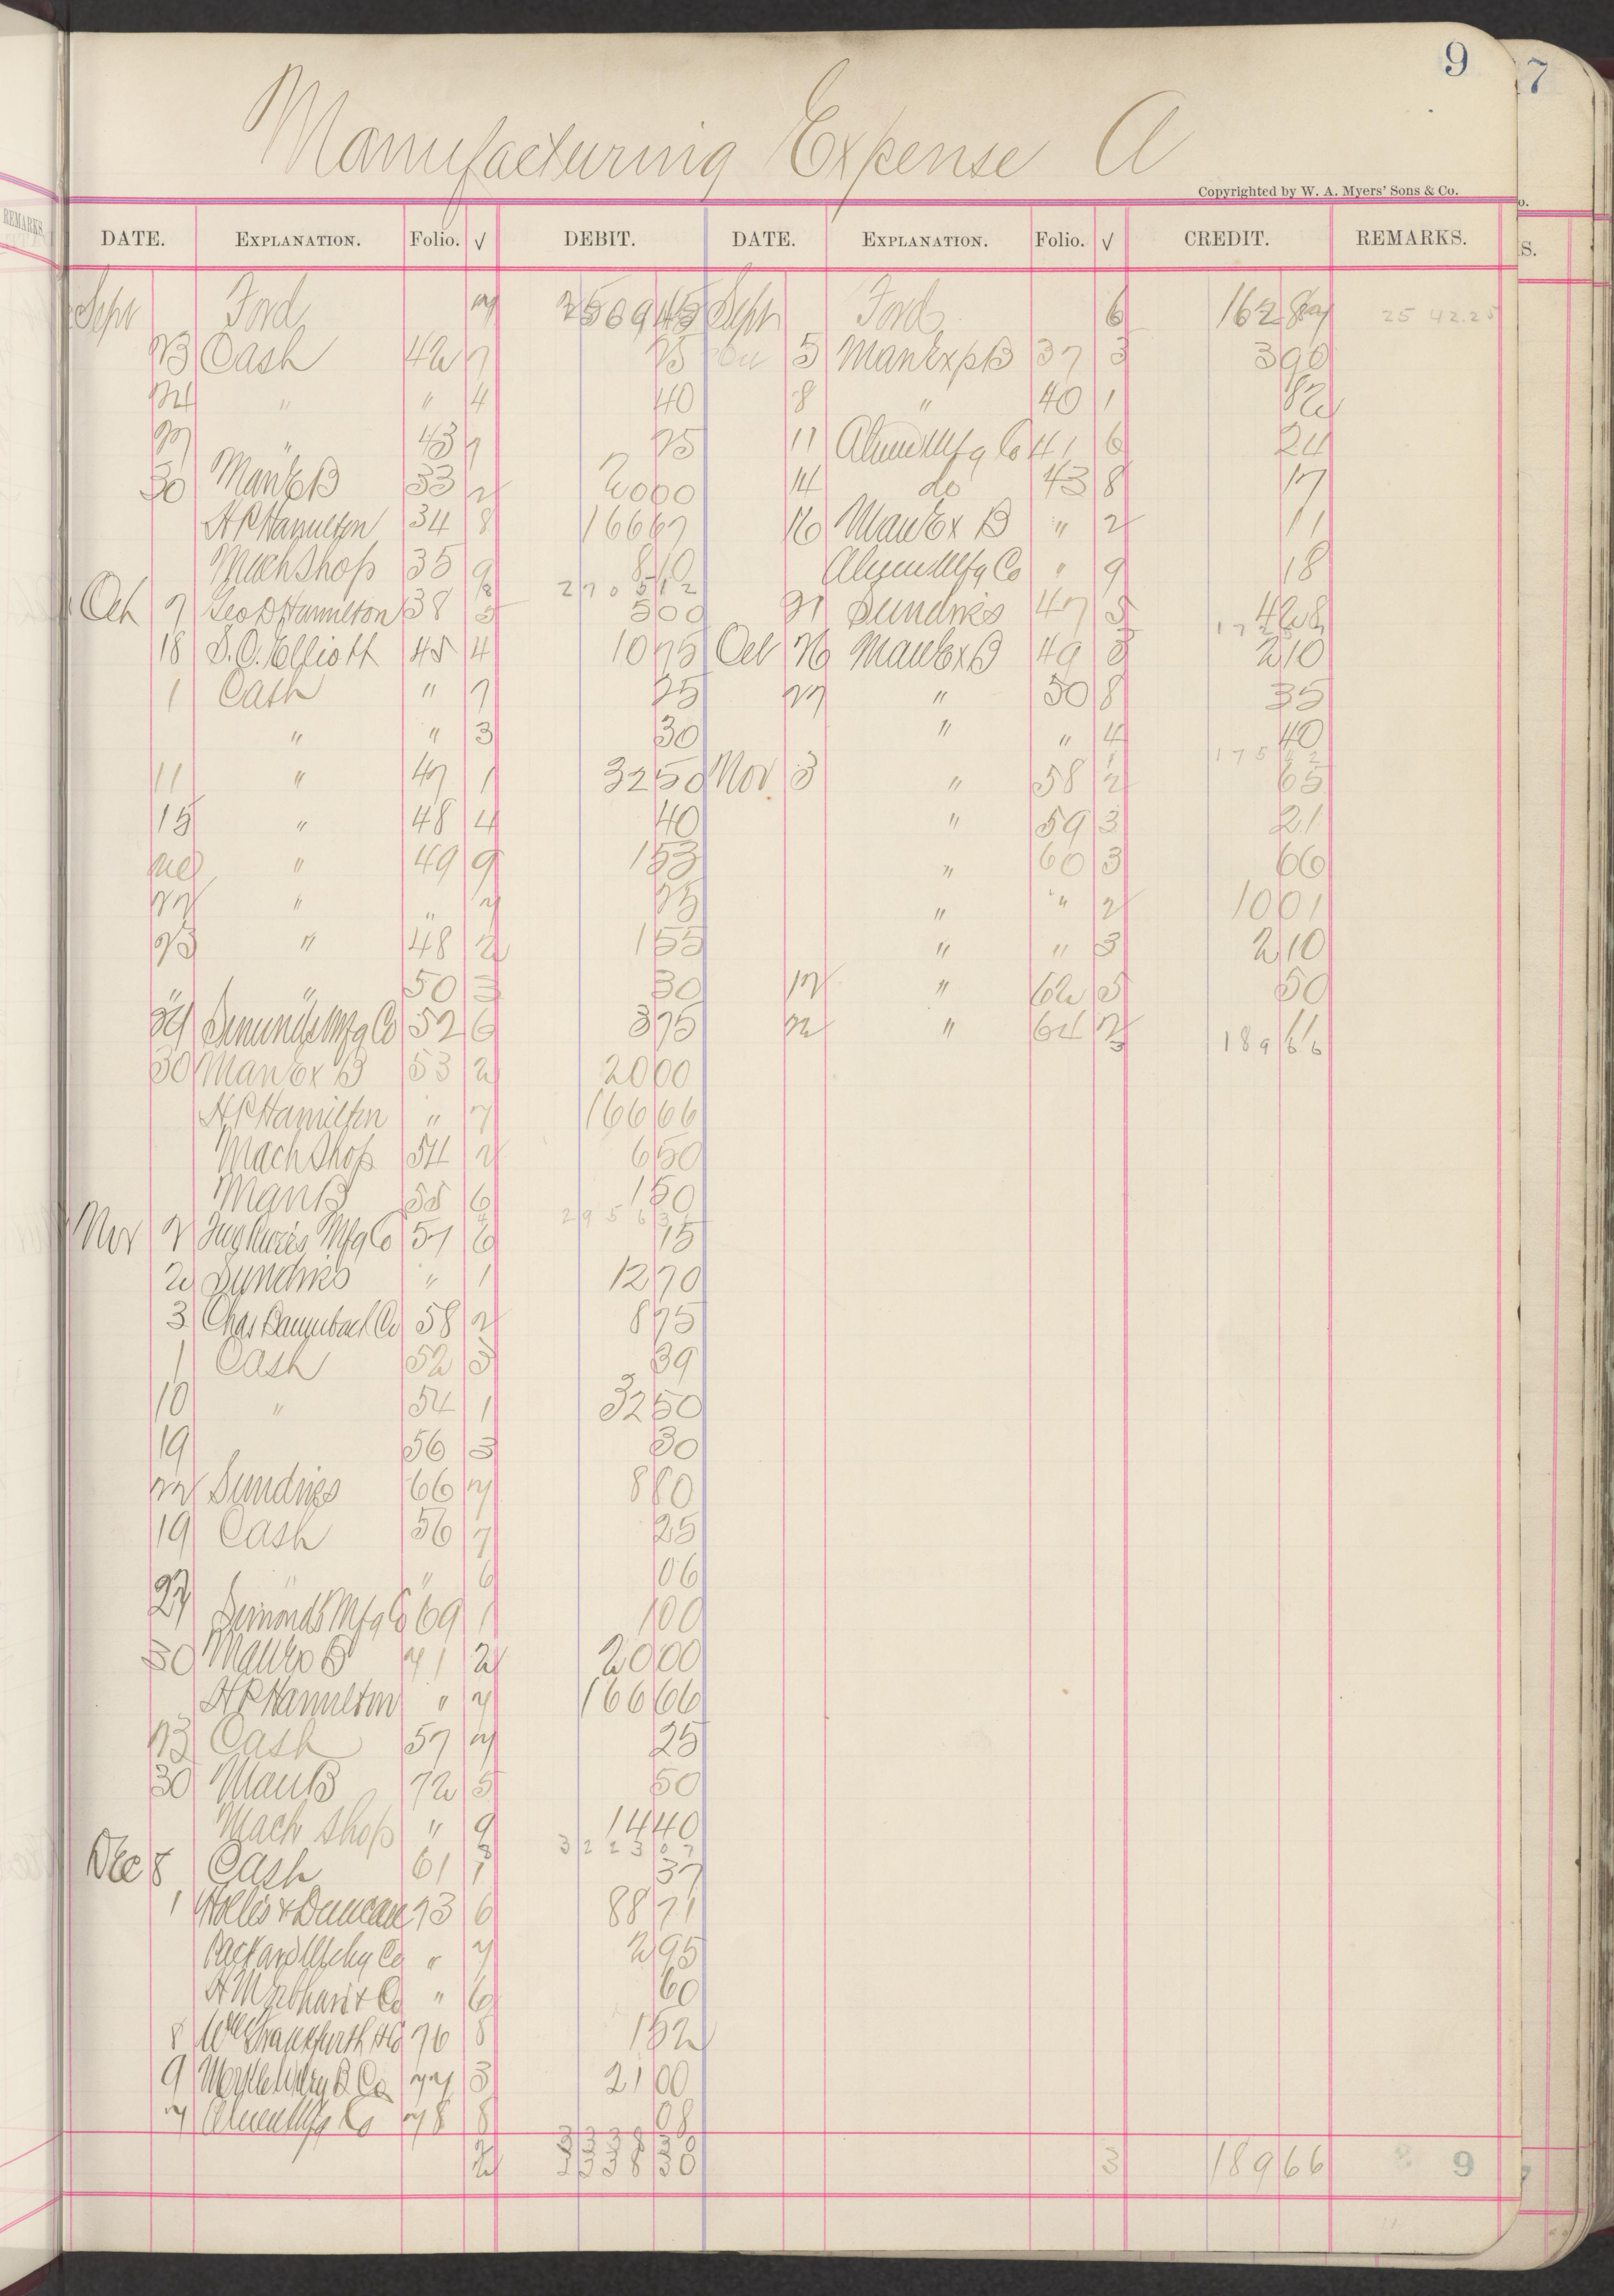 9
7
Manufacturing Expense A
Copyrighted by W. A. Myers' Sons & Co.
DATE. EXPLANATION. Folio. √ DEBIT. DATE. EXPLANATION. Folio. √ CREDIT. REMARKS.
Sept Ford 7 2569 45 Sept Ford 6 162 87 25 42.25
23 Cash 42 7 25 5 Man Exp B 37 3 3 90
24 " " 4 40 8 " 40 1 82
27 " 43 7 25 11 Mfg Co 41 6 24
30 Man E B 33 2 20 00 14 do 43 8 17
H P Hamilton 34 8 166 67 16 Man Ex B " 2 11
Mach Shop 35 9 8 10 Mfg Co " 9 18
2770 512
Oct 7 Geo D Hamilton 38 5 5 00 21 Sundries 47 5 4 28
18 S. O. Elliott 45 4 10 75 Oct 26 Man Ex B 49 3 2 10
1 Cash " 7 25 27 " 50 8 35
" " 3 30 " " 4 40
11 " 47 1 32 50 Nov 3 " 58 2 65
15 " 48 4 40 " 59 3 21
" 49 9 1 53 " 60 3 66
22 " " 7 25 " " 2 10 01
23 " 48 2 1 55 " " 3 2 10
" " 50 3 30 12 " 62 5 50
Mfg Co 52 6 3 75 22 " 64 2 11
189 66
30 Man Ex B 53 2 20 00
H P Hamilton " 7 166 66
Mach Shop 54 2 6 50
Man B 55 6 1 50
Nov 2 Mfg Co 57 6 15
2 Sundries " 1 12 70
3 Chas Baumbach Co 58 2 8 75
1 Cash 52 3 39
10 " 54 1 32 50
19 56 3 30
22 Sundries 66 7 8 80
19 Cash 56 7 25
" " 6 06
27 Simonds Mfg Co 69 1 1 00
30 Man Ex B 71 2 20 00
H P Hamilton " 7 166 66
23 Cash 57 7 25
30 Man B 72 5 50
Mach Shop " 9 14 40
3223 07
Dec 8 Cash 61 1 37
1 Hollis & Duncan 73 6 88 71
Packard Co " 7 2 95
& Co " 6 60
8 Wm Frankfurth H Co 76 8 1 52
9 Co 77 3 21 00
7 Mfg Co 78 8 08
3338 30
2 3338 30 3 189 66 9